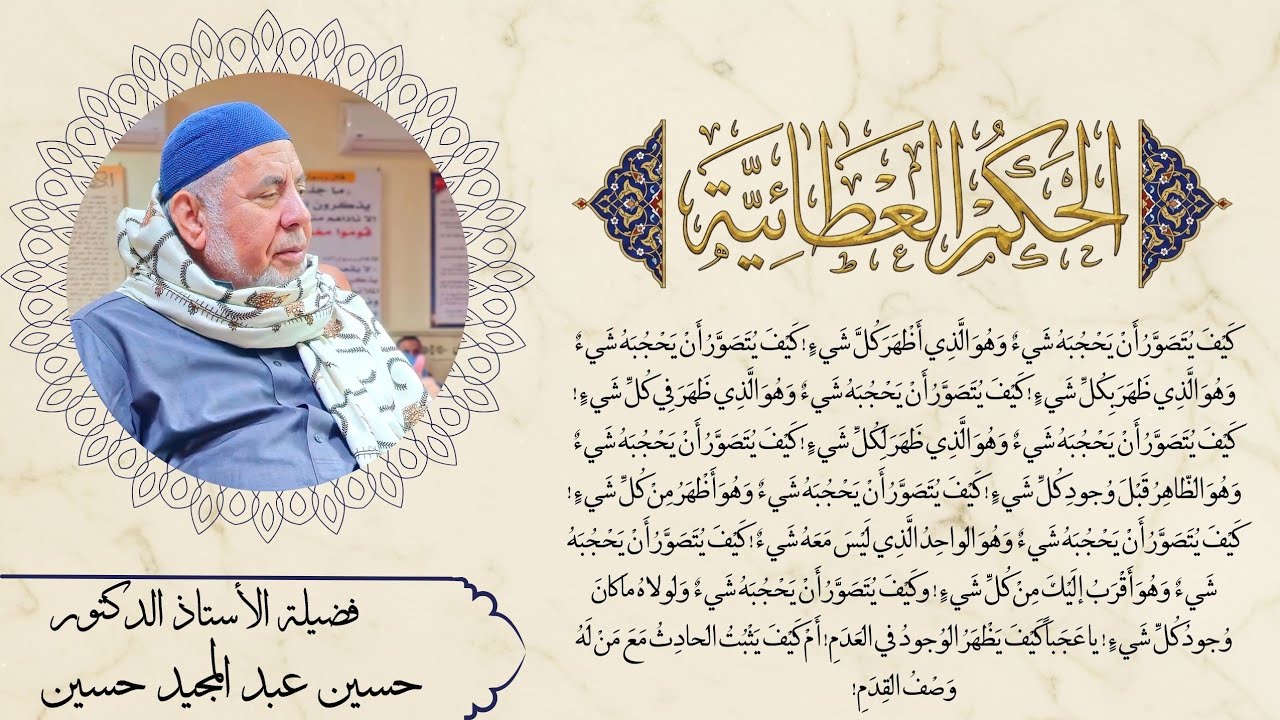 الحِكَمُ العَطَائِيَّة
كَيْفَ يُتَصَوَّرُ أَنْ يَحْجُبَهُ شَيءٌ وَهُوَ الَّذِي أَظْهَرَ كُلَّ شَيءٍ! كَيْفَ يُتَصَوَّرُ أَنْ يَحْجُبَهُ شَيءٌ
وَهُوَ الَّذِي ظَهَرَ بِكُلِّ شَيءٍ! كَيْفَ يُتَصَوَّرُ أَنْ يَحْجُبَهُ شَيءٌ وَهُوَ الَّذِي ظَهَرَ فِي كُلِّ شَيءٍ!
كَيْفَ يُتَصَوَّرُ أَنْ يَحْجُبَهُ شَيءٌ وَهُوَ الَّذِي ظَهَرَ لِكُلِّ شَيءٍ! كَيْفَ يُتَصَوَّرُ أَنْ يَحْجُبَهُ شَيءٌ
وَهُوَ الظّاهِرُ قَبْلَ وُجودِ كُلِّ شَيءٍ! كَيْفَ يُتَصَوَّرُ أَنْ يَحْجُبَهُ شَيءٌ وَهُوَ أَظْهَرُ مِنْ كُلِّ شَيءٍ!
كَيْفَ يُتَصَوَّرُ أَنْ يَحْجُبَهُ شَيءٌ وَهُوَ الواحِدُ الَّذِي لَيْسَ مَعَهُ شَيءٌ! كَيْفَ يُتَصَوَّرُ أَنْ يَحْجُبَهُ
شَيءٌ وَهُوَ أَقْرَبُ إلَيْكَ مِنْ كُلِّ شَيءٍ! وَكَيْفَ يُتَصَوَّرُ أَنْ يَحْجُبَهُ شَيءٌ وَلَولاهُ ماكانَ
وُجودُ كُلِّ شَيءٍ! يا عَجَباً كَيْفَ يَظْهَرُ الوُجودُ في العَدَمِ! أَمْ كَيْفَ يَثْبُتُ الحادِثُ مَعَ مَنْ لَهُ
وَصْفُ القِدَمِ!
فضيلة الأستاذ الدكتور
حسين عبد المجيد حسين
ما جل
يذكرون
قوموا